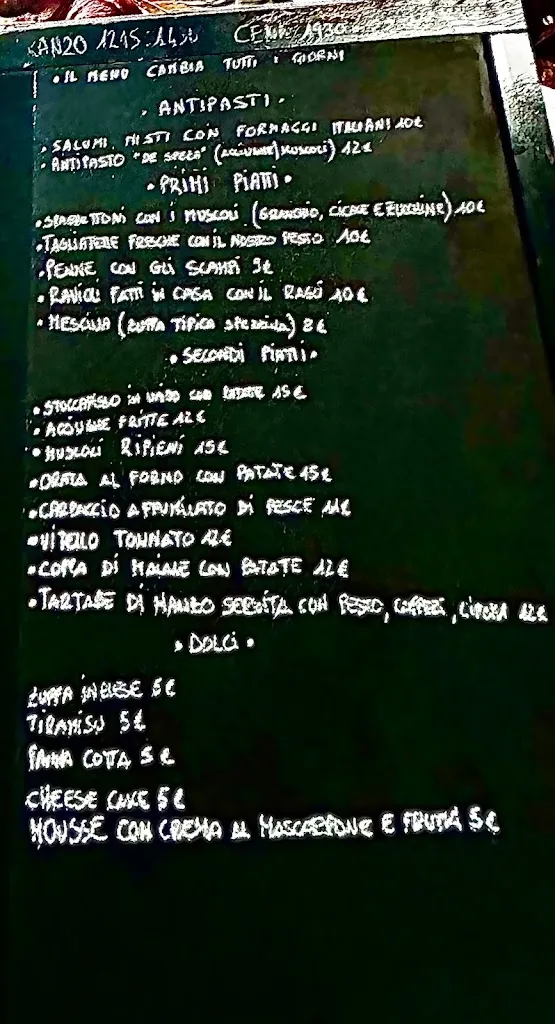 PRANZO 12.15:14.30 CENA 19.30
• IL MENÙ CAMBIA TUTTI I GIORNI
• ANTIPASTI •
• SALUMI MISTI CON FORMAGGI ITALIANI 10€
• ANTIPASTO "DE SPEZA" (ACCIUGHE/MUSCOLI) 12€
• PRIMI PIATTI •
• SPAGHETTONI CON I MUSCOLI (GRANCHIO, CICALE E ZUCCHINE) 10€
• TAGLIATELLE FRESCHE CON IL NOSTRO PESTO 10€
• PENNE CON GLI SCAMPI 9€
• RAVIOLI FATTI IN CASA CON IL RAGÙ 10€
• MESCIUA (ZUPPA TIPICA SPEZZINA) 8€
• SECONDI PIATTI •
• STOCCAFISSO IN UMIDO CON PATATE 15€
• ACCIUGHE FRITTE 12€
• MUSCOLI RIPIENI 15€
• ORATA AL FORNO CON PATATE 15€
• CARPACCIO AFFUMICATO DI PESCE 14€
• VITELLO TONNATO 12€
• COPPA DI MAIALE CON PATATE 12€
• TARTARE DI MANZO SERVITA CON PESTO, CAPPERI, CIPOLLA 12€
• DOLCI •
ZUPPA INGLESE 5€
TIRAMISU 5€
PANNA COTTA 5€
CHEESE CAKE 5€
MOUSSE CON CREMA AL MASCARPONE E FRUTTA 5€